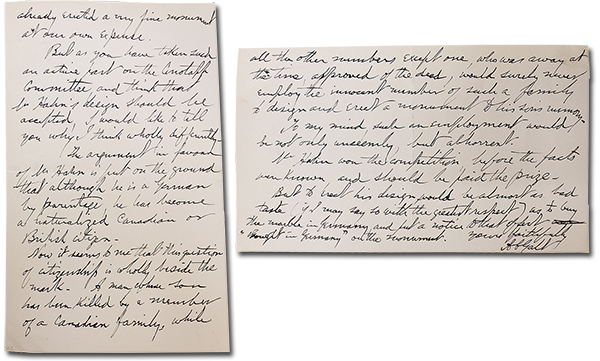 already erected a very fine monument
at our own expense.
But as you have taken such
an active part on the Cenotaff
Committee, and think that
Mr Hahn's design should be
accepted, I would like to tell
you why I think wholly differently.
The argument in favour
of Mr Hahn is put on the ground
that although he is a German
by parentage, he has become
a naturalized Canadian or
British citizen.
Now it seems to me that this question
of citizenship is wholly beside the
mark. A man whose son
has been killed by a member
of a Canadian family, while
all the other members except one, who was away at
the time approved of the deed, would surely never
employ the innocent member of such a family
to design and erect a monument to his son's memory.
To my mind such an employment would
be not only unseemly, but abhorrent.
Mr Hahn won the competition, before the facts
were known, and should be paid the prize.
But to erect his design would be almost as bad
taste (if I may say so with the greatest respect) as to buy
the marble in Germany and put a notice to that effect
"Bought in Germany" on the monument.
Yours faithfully
A C Galt